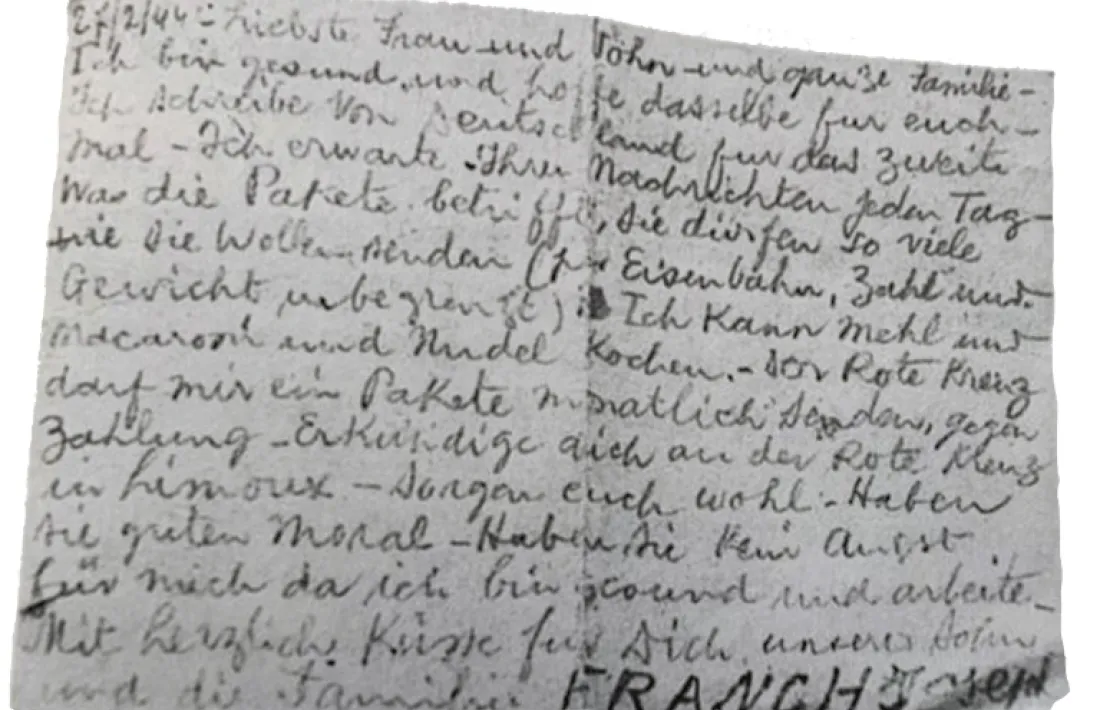 27/2/44 :- Liebste Frau und Söhn und ganze Familie -
Ich bin gesund und hoffe dasselbe fur euch -
Ich schreibe Von Deutschland fur das zweite
mal - Ich erwarte Ihre Nachrichten jeden Tag -
Was die Pakete betrifft, sie dürfen so viele
wie sie Wollen senden (per Eisenbahn, Zahl und
Gewicht unbegrenzt). Ich Kann Mehl und
Macaroni und Nudel Kochen. - Der Rote Kreuz
darf mir ein Pakete monatlich senden, gegen
Zahlung - Erkundige dich an der Rote Kreuz
in Limoux - Sorgen euch wohl - Haben
sie guten Moral - Haben sie Kein Angst
für mich da ich bin gesund und arbeite -
Mit herzliche Küsse fur Dich unseres Sohn
und die Familie FRANCH Joseph